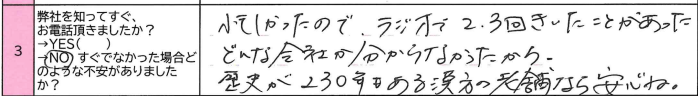 3
弊社を知ってすぐ、
お電話頂きましたか？
→YES(　　)
→NO) すぐでなかった場合ど
のような不安がありました
か？
忙しかったので、ラジオで2.3回きいたことがあった
どんな会社か分からなかったから。
歴史が230年もある漢方の老舗なら安心ね。